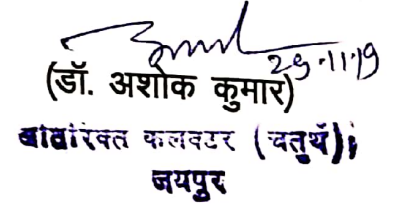 29.11.19
(डॉ. अशोक कुमार)
अतिरिक्त कलक्टर (चतुर्थ)
जयपुर